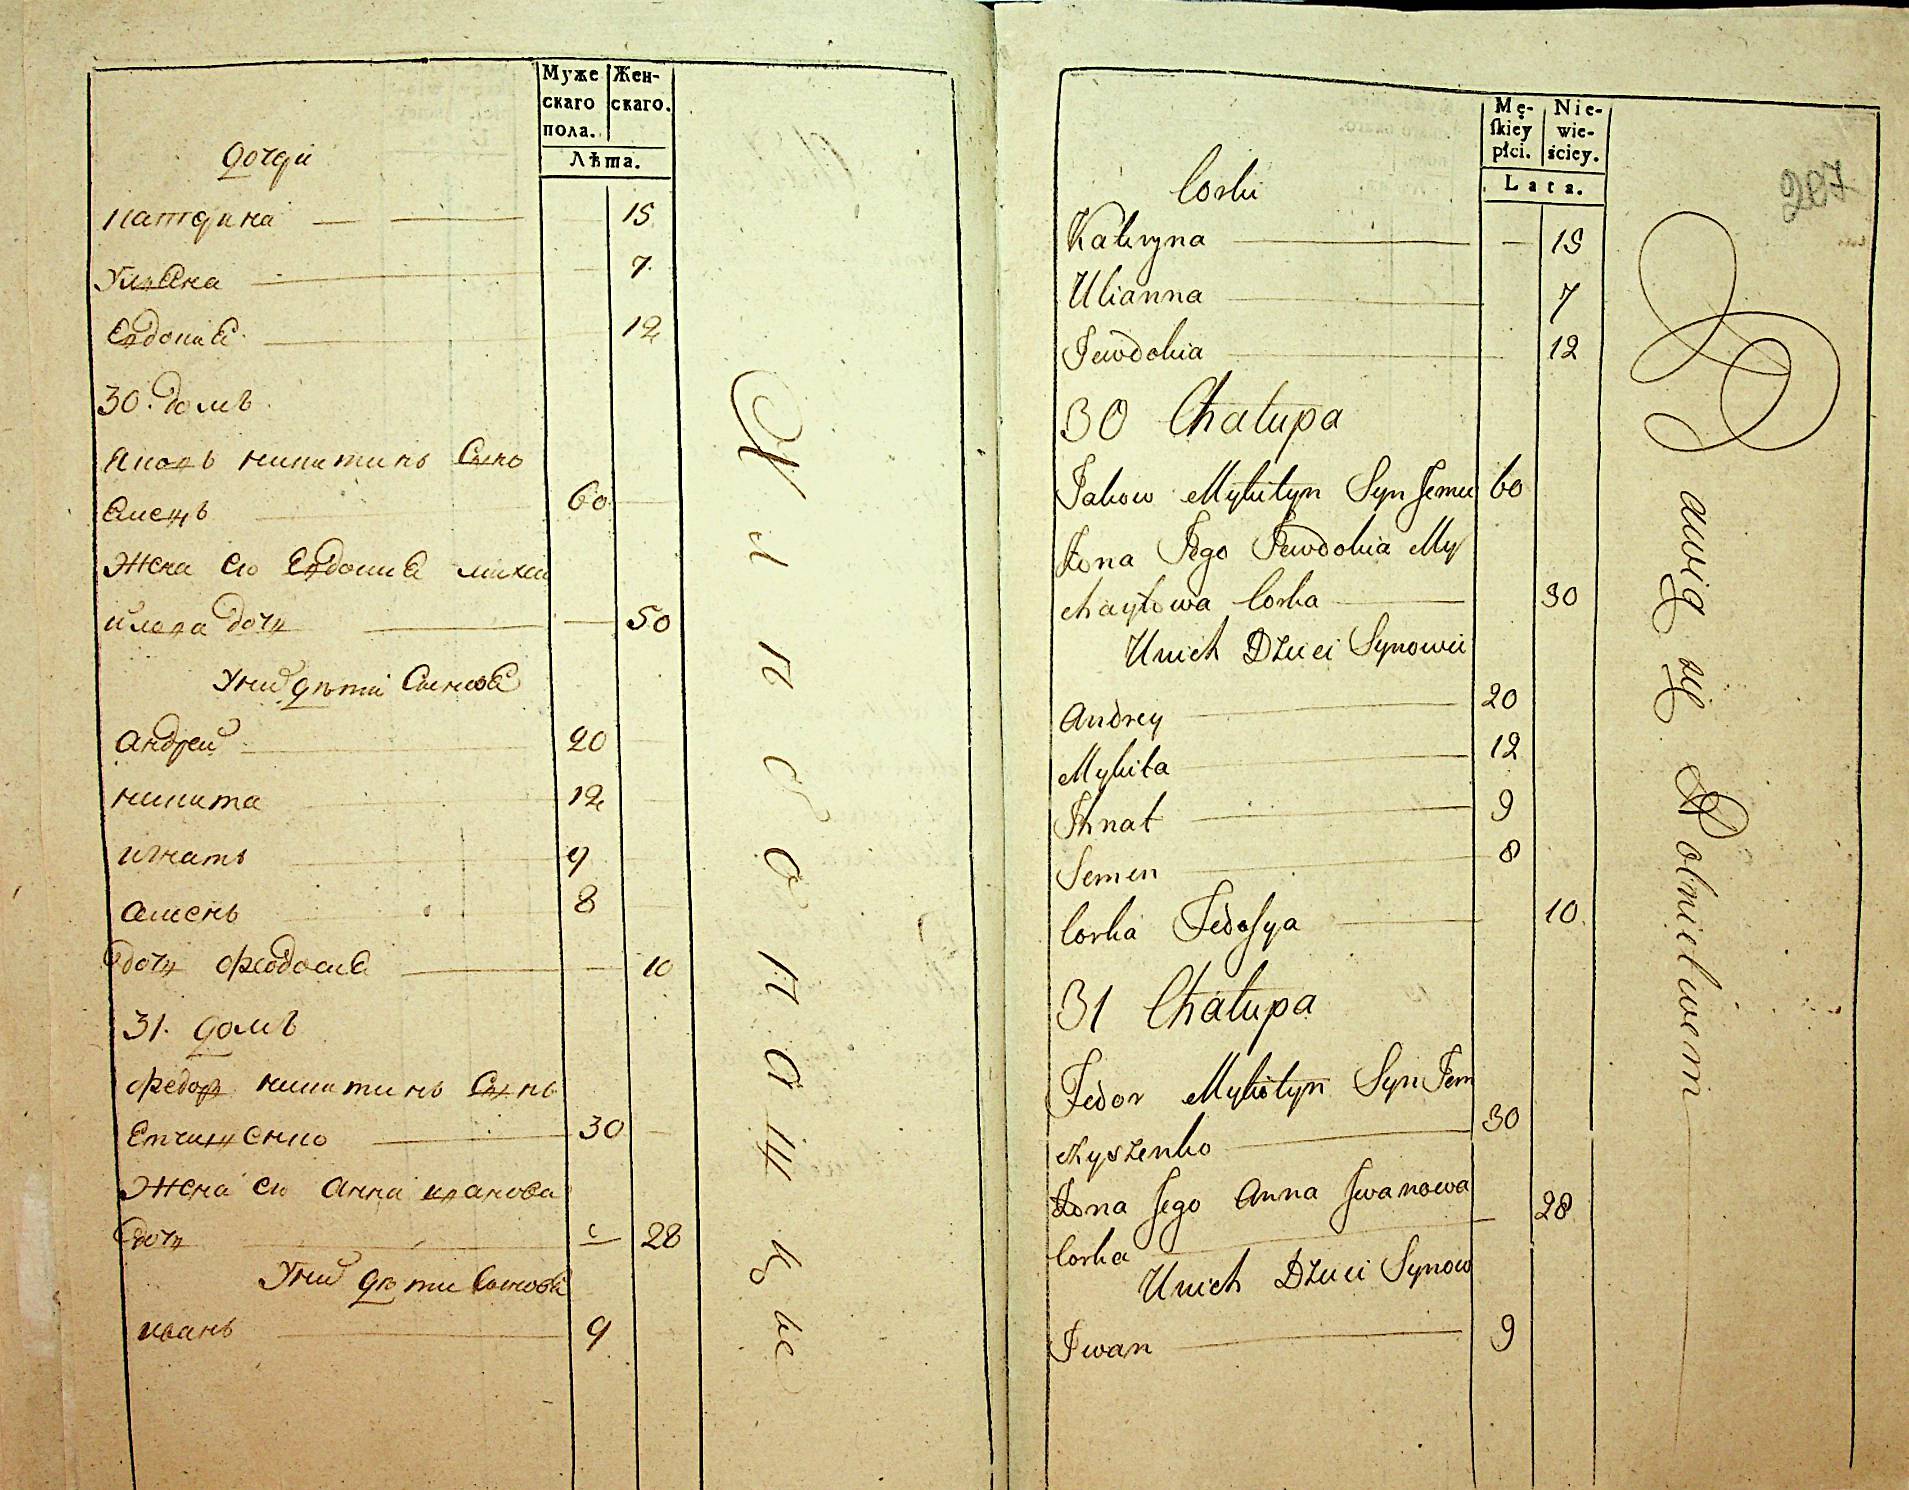 Муже
скаго
пола.
Жен-
скаго.
Лѣта.
дочери
катерина 15
Улвяна 7
Евдокия 12
30. домъ
Яковъ никитинъ Сынъ
60
Жена ею Евдокия михаи
илова дочь 50
Уних дѣти Сыновя
Андреи 20
никита 12
игнатъ 9
Семенъ 8
дочь феодосия 10
31. домъ
федор никитинъ Сынъ
30
Жена ею Анна иванова
дочь 28
Уних дѣти Сыновя
иванъ 9
Хлѣбопашцы
Mę-
skiey
płci.
Nie-
wie-
ściey.
Lata.
207
Corki
Kateryna 15
Ulianna 7
Jewdokia 12
30 Chałupa
Jakow Mykityn Syn Jemu 60
Żona Jego Jewdokia My
chayłowa Corka 30
Unich Dzieci Synowie
Andrey 20
Mykita 12
Ihnat 9
Semen 8
Corka Fedosya 10
31 Chałupa
Fedor Mykityn Syn Jem
czyszenko 30
Żona Jego Anna Jwanowa
Corka 28
Unich Dzieci Synow
Iwan 9
Bawią się Rolnictwem